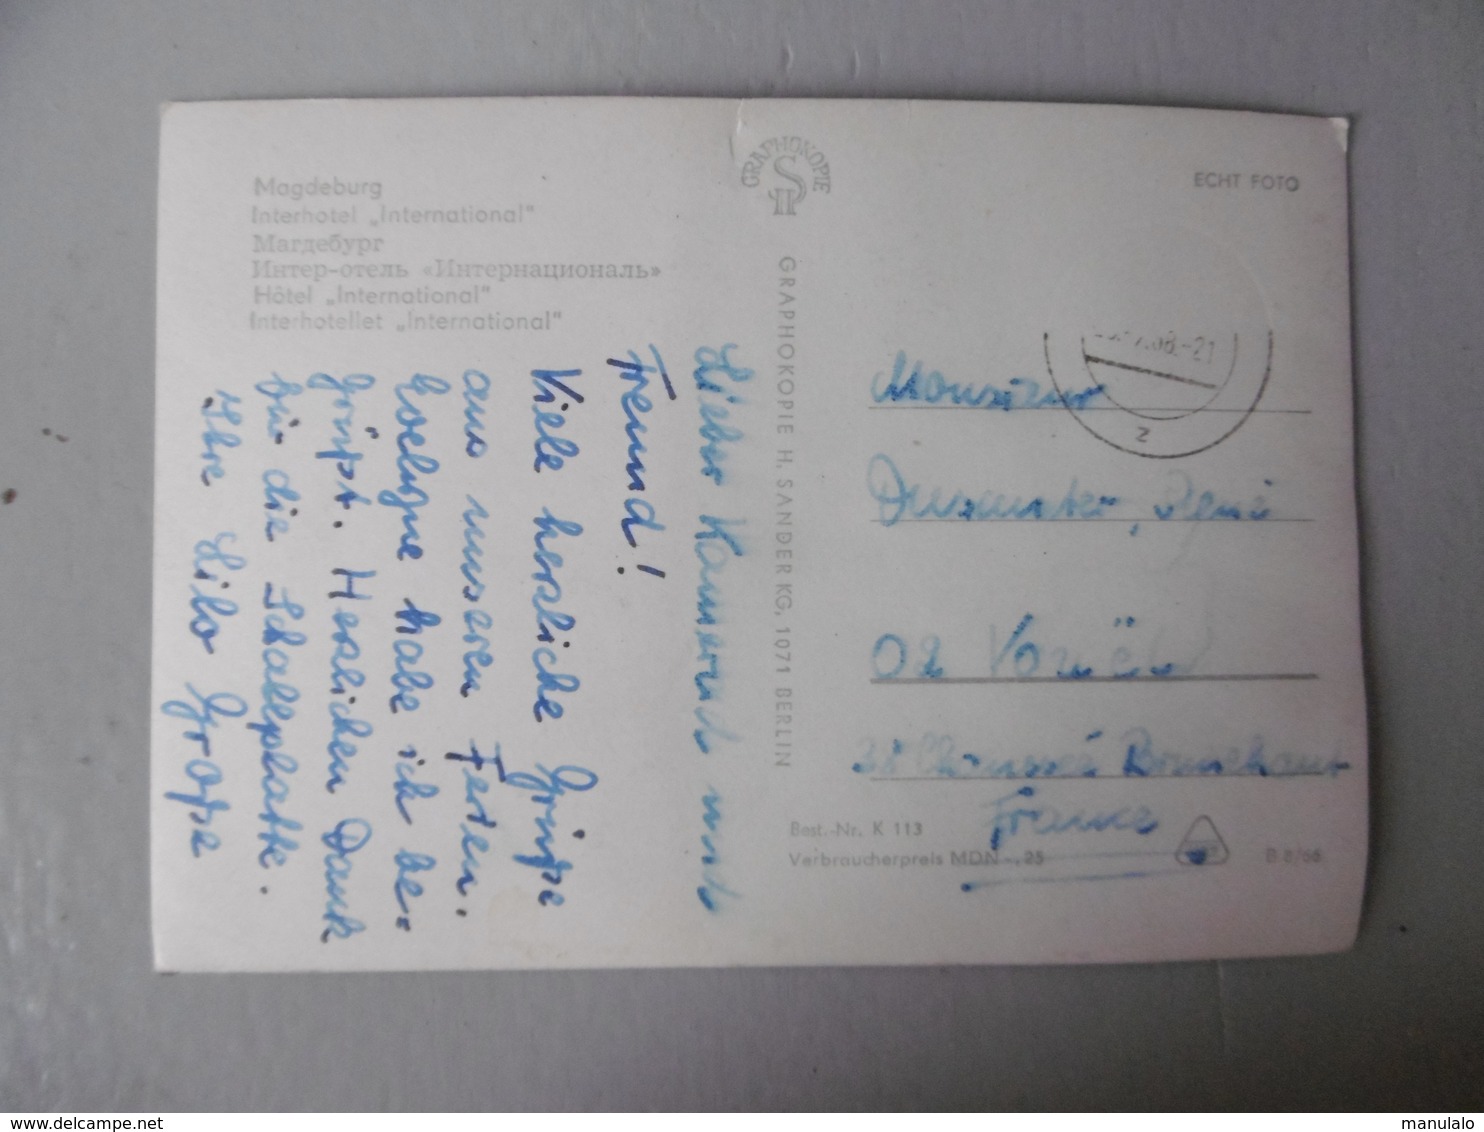 Magdeburg
Interhotel „International"
Магдебург
Интер-отель «Интернациональ»
Hôtel „International"
Interhotellet „International"
Lieber Kamerad und
Freund!
Viele herzliche Grüße
aus unseren Ferien.
habe ich be-
grüßt. Herzlichen Dank
für die Schallplatte.
Ihre Lilo Große
GRAPHOKOPIE
GRAPHOKOPIE H. SANDER KG, 1071 BERLIN
ECHT FOTO
-21
Z
Monsieur
René
02
38 Chaussée Brunehaut
France
Best.-Nr. K 113
Verbraucherpreis MDN -,25
B 8/66
delcampe.net
manulalo